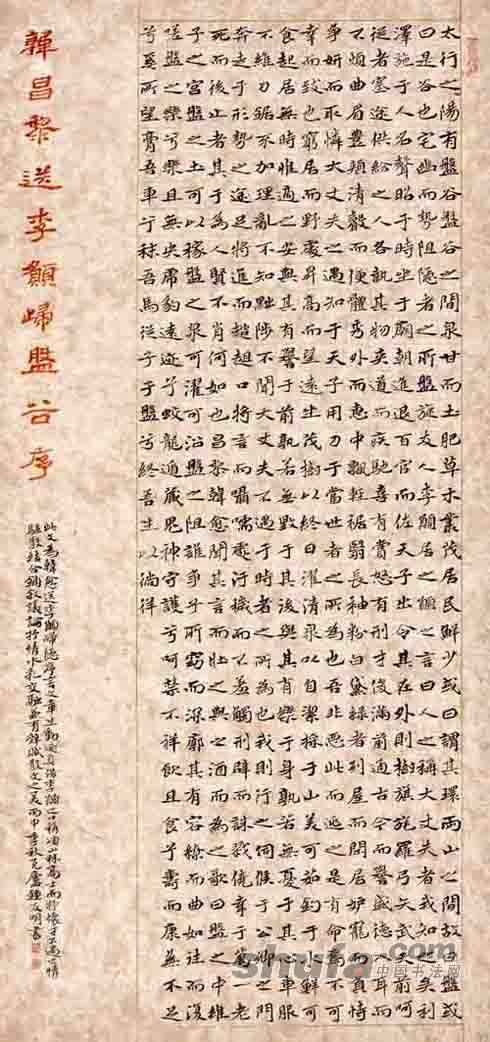 太行之陽有盤谷盤谷之間泉甘而土肥草木叢茂居民鮮少或曰謂其環兩山之間故曰盤或
曰是谷也宅幽而勢阻隱者之所盤旋友人李願居之願之言曰人之稱大丈夫者我知之矣利
澤施于人名聲昭于時坐于廟朝進退百官而佐天子出令其在外則樹旗旄羅弓矢武夫前呵
從者塞途供給之人各執其物夾道而疾馳喜有賞怒有刑才俊滿前道古今而譽盛德入耳而
不煩曲眉豐頰清聲而便體秀外而惠中飄輕裾翳長袖粉白黛綠者列屋而閒居妒寵而負恃
爭妍而取憐大丈夫之遇知于天子用力于當世者之所為也吾非惡此而逃之是有命焉不可
幸而致也窮居而野處昇高而望遠坐茂樹以終日濯清泉以自潔採于山美可茹釣于水鮮可
食起居無時惟適之安與其有譽于前孰若無毀于其後與其有樂于身孰若無憂于其心車服
不維刀鋸不加理亂不知黜陟不聞大丈夫不遇于時者之所為也我則行之伺候于公卿之門
奔走于形勢之途足將進而趑趄口將言而囁嚅處汙穢而不羞觸刑辟而誅戮僥倖于萬一老
死而後止者其于為人賢不肖何如也昌黎韓愈聞其言而壯之與之酒而為之歌曰盤之中維
子之宮盤之土可以稼盤之泉可濯可沿盤之阻誰爭子所窈而深廓其有容繚而曲如往而復
嗟盤之樂兮樂且無央虎豹遠迹兮蛟龍遁藏鬼神守護兮呵禁不祥飲且食兮壽而康無不足
兮奚所望膏吾車兮秣吾馬從子于盤兮終吾生以徜徉
韓昌黎送李願歸盤谷序
此文為韓愈送李願歸隱序言文章生動逼真借李願之口稱頌山林高士而抒懷才不遇之情
駢散結合鋪敘議論抒情水乳交融並有 賦散文之美丙申季秋 廬鍾友明書
shufa.com
中国书法网